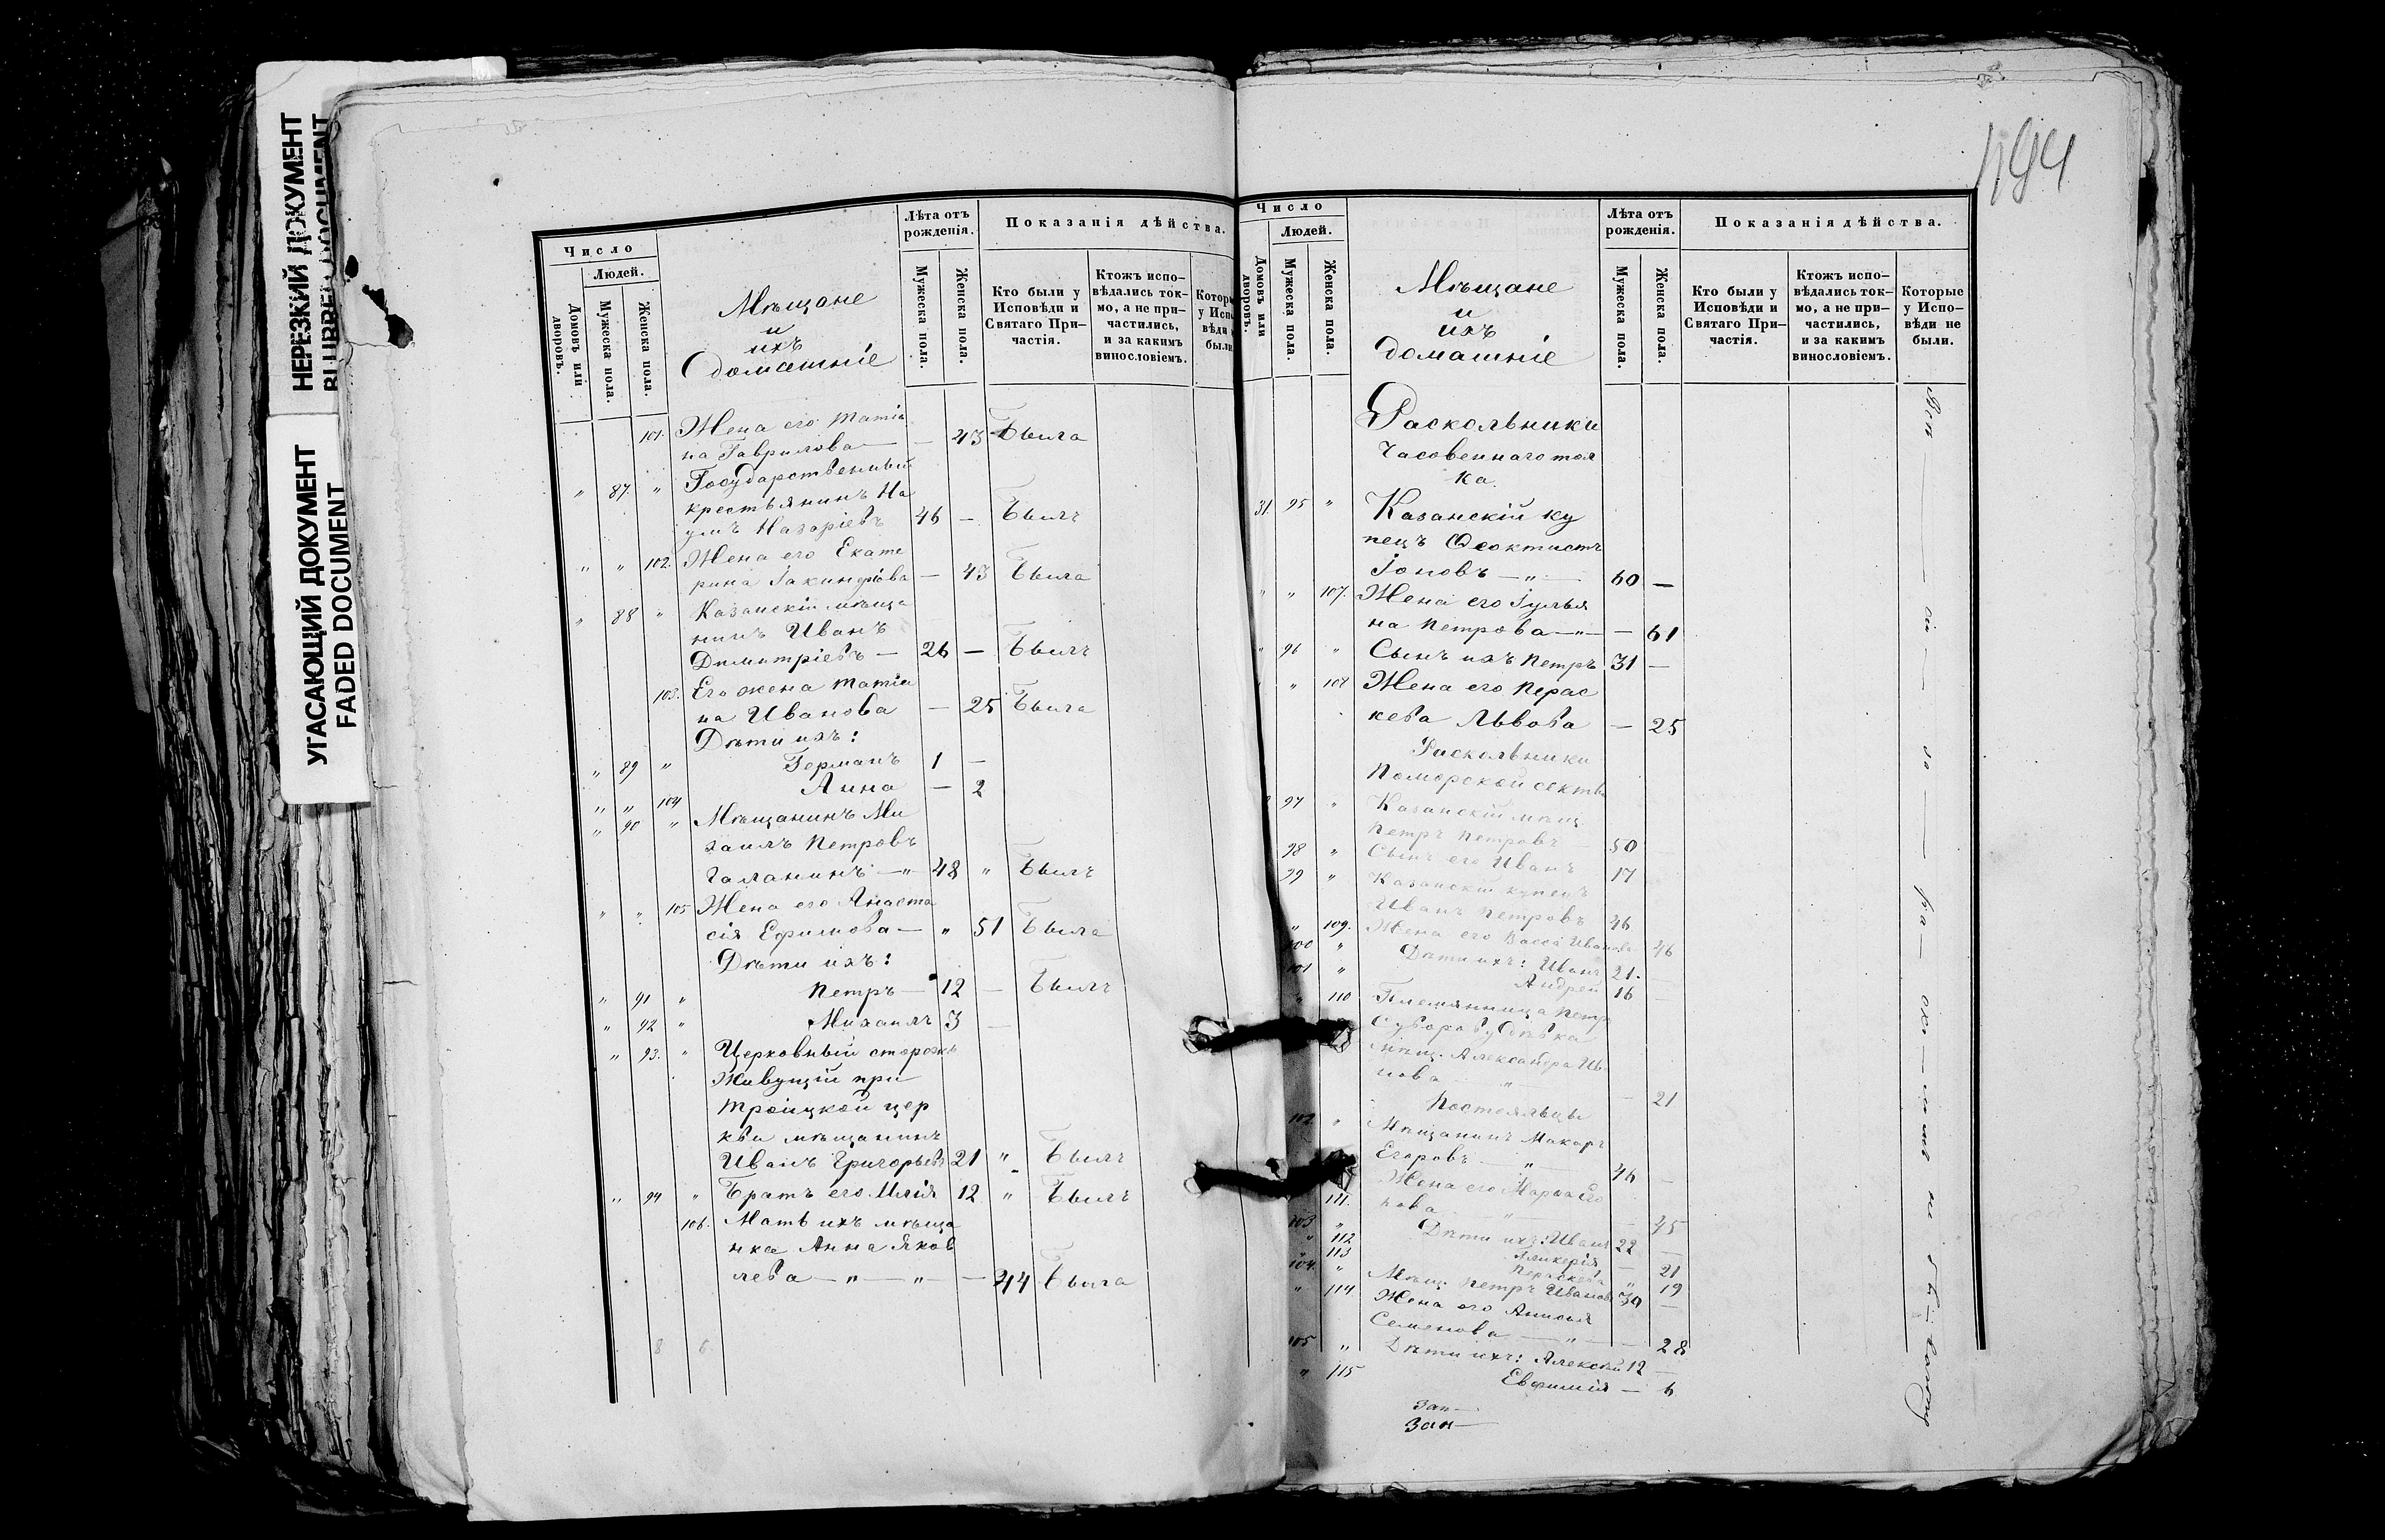 НЕРЕЗКИЙ ДОКУМЕНТ
BLURRED DOCUMENT
УГАСАЮЩИЙ ДОКУМЕНТ
FADED DOCUMENT
Число
Людей.
Домовъ или дворовъ.
Мужеска пола.
Женска пола.
Мѣщане
и
ихъ
домашніе
Лѣта отъ рожденія.
Мужеска пола.
Женска пола.
Показанія дѣйства.
Кто были у Исповѣди и Святаго При-
частія.
Ктожъ испо-
вѣдались ток-
мо, а не при-
частились,
и за какимъ
винословіемъ.
101. Жена его Татіа
на Гаврилова — — 43 Была
" 87. " Государственный
крестьянинъ На
умъ Назаріевъ 46 — Былъ
" " 102. Жена его Екате
рина Іакинфова — 43 Была
" 88 " Казанскій мѣща
нинъ Иванъ
Димитріевъ — 26 — Былъ
103. Его жена Татіа
на Иванова — 25 Была
Дѣти ихъ:
" 89 " Германъ 1 —
" " 104 Анна — 2
" 90 " Мѣщанинъ Ми
хаилъ Петровъ
Галанинъ —"— 48 " Былъ
" " 105 Жена его Анаста
сія Ефимова — " 51 Была
Дѣти ихъ:
" 91 " Петръ — 12 — Былъ
" 92 " Михаилъ 3 —
" 93. " Церковный сторожъ
живущій при
Троицкой цер
кви мѣщанинъ
Иванъ Григорьевъ 21 " Былъ
" 94 " Братъ его Илія 12 " Былъ
106. Мать ихъ мѣща
нка Анна Яков
лева —"—"— — 44 Была
8 6
194
Число
Людей.
Домовъ или дворовъ.
Мужеска пола.
Женска пола.
Мѣщане
и
ихъ
домашніе
Лѣта отъ рожденія.
Мужеска пола.
Женска пола.
Показанія дѣйства.
Кто были у Исповѣди и Святаго При-
частія.
Ктожъ испо-
вѣдались ток-
мо, а не при-
частились,
и за какимъ
винословіемъ.
Которые
у Испо-
вѣди не
были.
Раскольники
Часовеннаго тол
ка.
31. 95 " Казанскій ку
пецъ Ѳеоктистъ
Іоновъ —"— 60 —
" " 107. Жена его Іулья
на Петрова —"— — 61
" 96 " Сынъ ихъ Петръ 31 —
" 108 Жена его Парас
кева Львова — 25
Раскольники
Поморской секты
97 " Казанскій мѣщ.
Петръ Петровъ 50
98 " Сынъ его Иванъ 17
99 " Казанскій купецъ
Иванъ Петровъ 46
" 109. Жена его Васса Иванова 46
100 " Дѣти ихъ: Иванъ 21.
101 " Андрей 16
" 110 Племянница Петр
мѣщ. Александра Ив.
нова " — 21
Постояльцы
102 " Мѣщанинъ Макаръ
Егоровъ —"— 46 —
111. Жена его Марѳа
нова " — 45
103 " Дѣти ихъ: Иванъ 22 —
" 112 Гликерія — 21
" 113 Параскева " 19
104. " Мѣщ. Петръ Ивановъ 30 —
" 114 Жена его Анисья
Семенова —"— — 28
105 " Дѣти ихъ: Алексѣй 12 —
" 115 Евфимія — 6
Зап—
Зап—